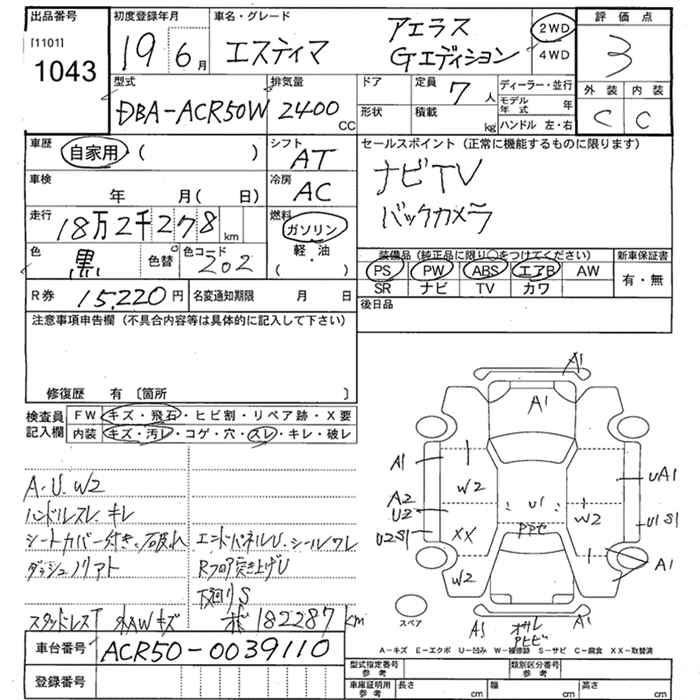 出品番号
[1101]
1043
初度登録年月
19年6月
車名・グレード
エスティマ
アエラス
Gエディション
2WD
4WD
評価点
3
外装 内装
C C
型式
DBA-ACR50W
排気量
2400
CC
ドア
形状
定員
7人
積載
kg
ディーラー・並行
モデル年式 年
ハンドル 左・右
車歴
自家用 ( )
シフト
AT
車検
年 月( 日)
冷房
AC
走行
18万2千278km
燃料
ガソリン
軽・油
( )
色
黒
色替
色コード
202
R券 15,220円
名変通知期限 月 日
セールスポイント (正常に機能するものに限ります)
ナビTV
バックカメラ
装備品 (純正品に限り○をつけてください)
PS PW ABS エアB AW
SR ナビ TV カワ
新車保証書
有・無
後日品
注意事項申告欄 (不具合内容等は具体的に記入して下さい)
修復歴 有 〔箇所 〕
検査員
記入欄
FW キズ・飛石・ヒビ割・リペア跡・X要
内装 キズ・汚レ・コゲ・穴・スレ・キレ・破レ
A.U.W2
ハンドルスレ.キレ
シートカバー付き、破れ
エンドパネルU、シールワレ
Rフロア突き上げU
下廻りS
182287km
A1
A1
A1
W2
A2
U2
U2S1
XX
W2
U1
W2
UA1
U1S1
A1
A1
スペア
A-キズ E-エクボ U-凹み W-補修跡 S-サビ C-腐食 XX-取替済
車台番号
ACR50-0039110
登録番号
型式指定番号
参考
類別区分番号
参考
車庫証明用
参考
長さ cm
幅 cm
高さ cm